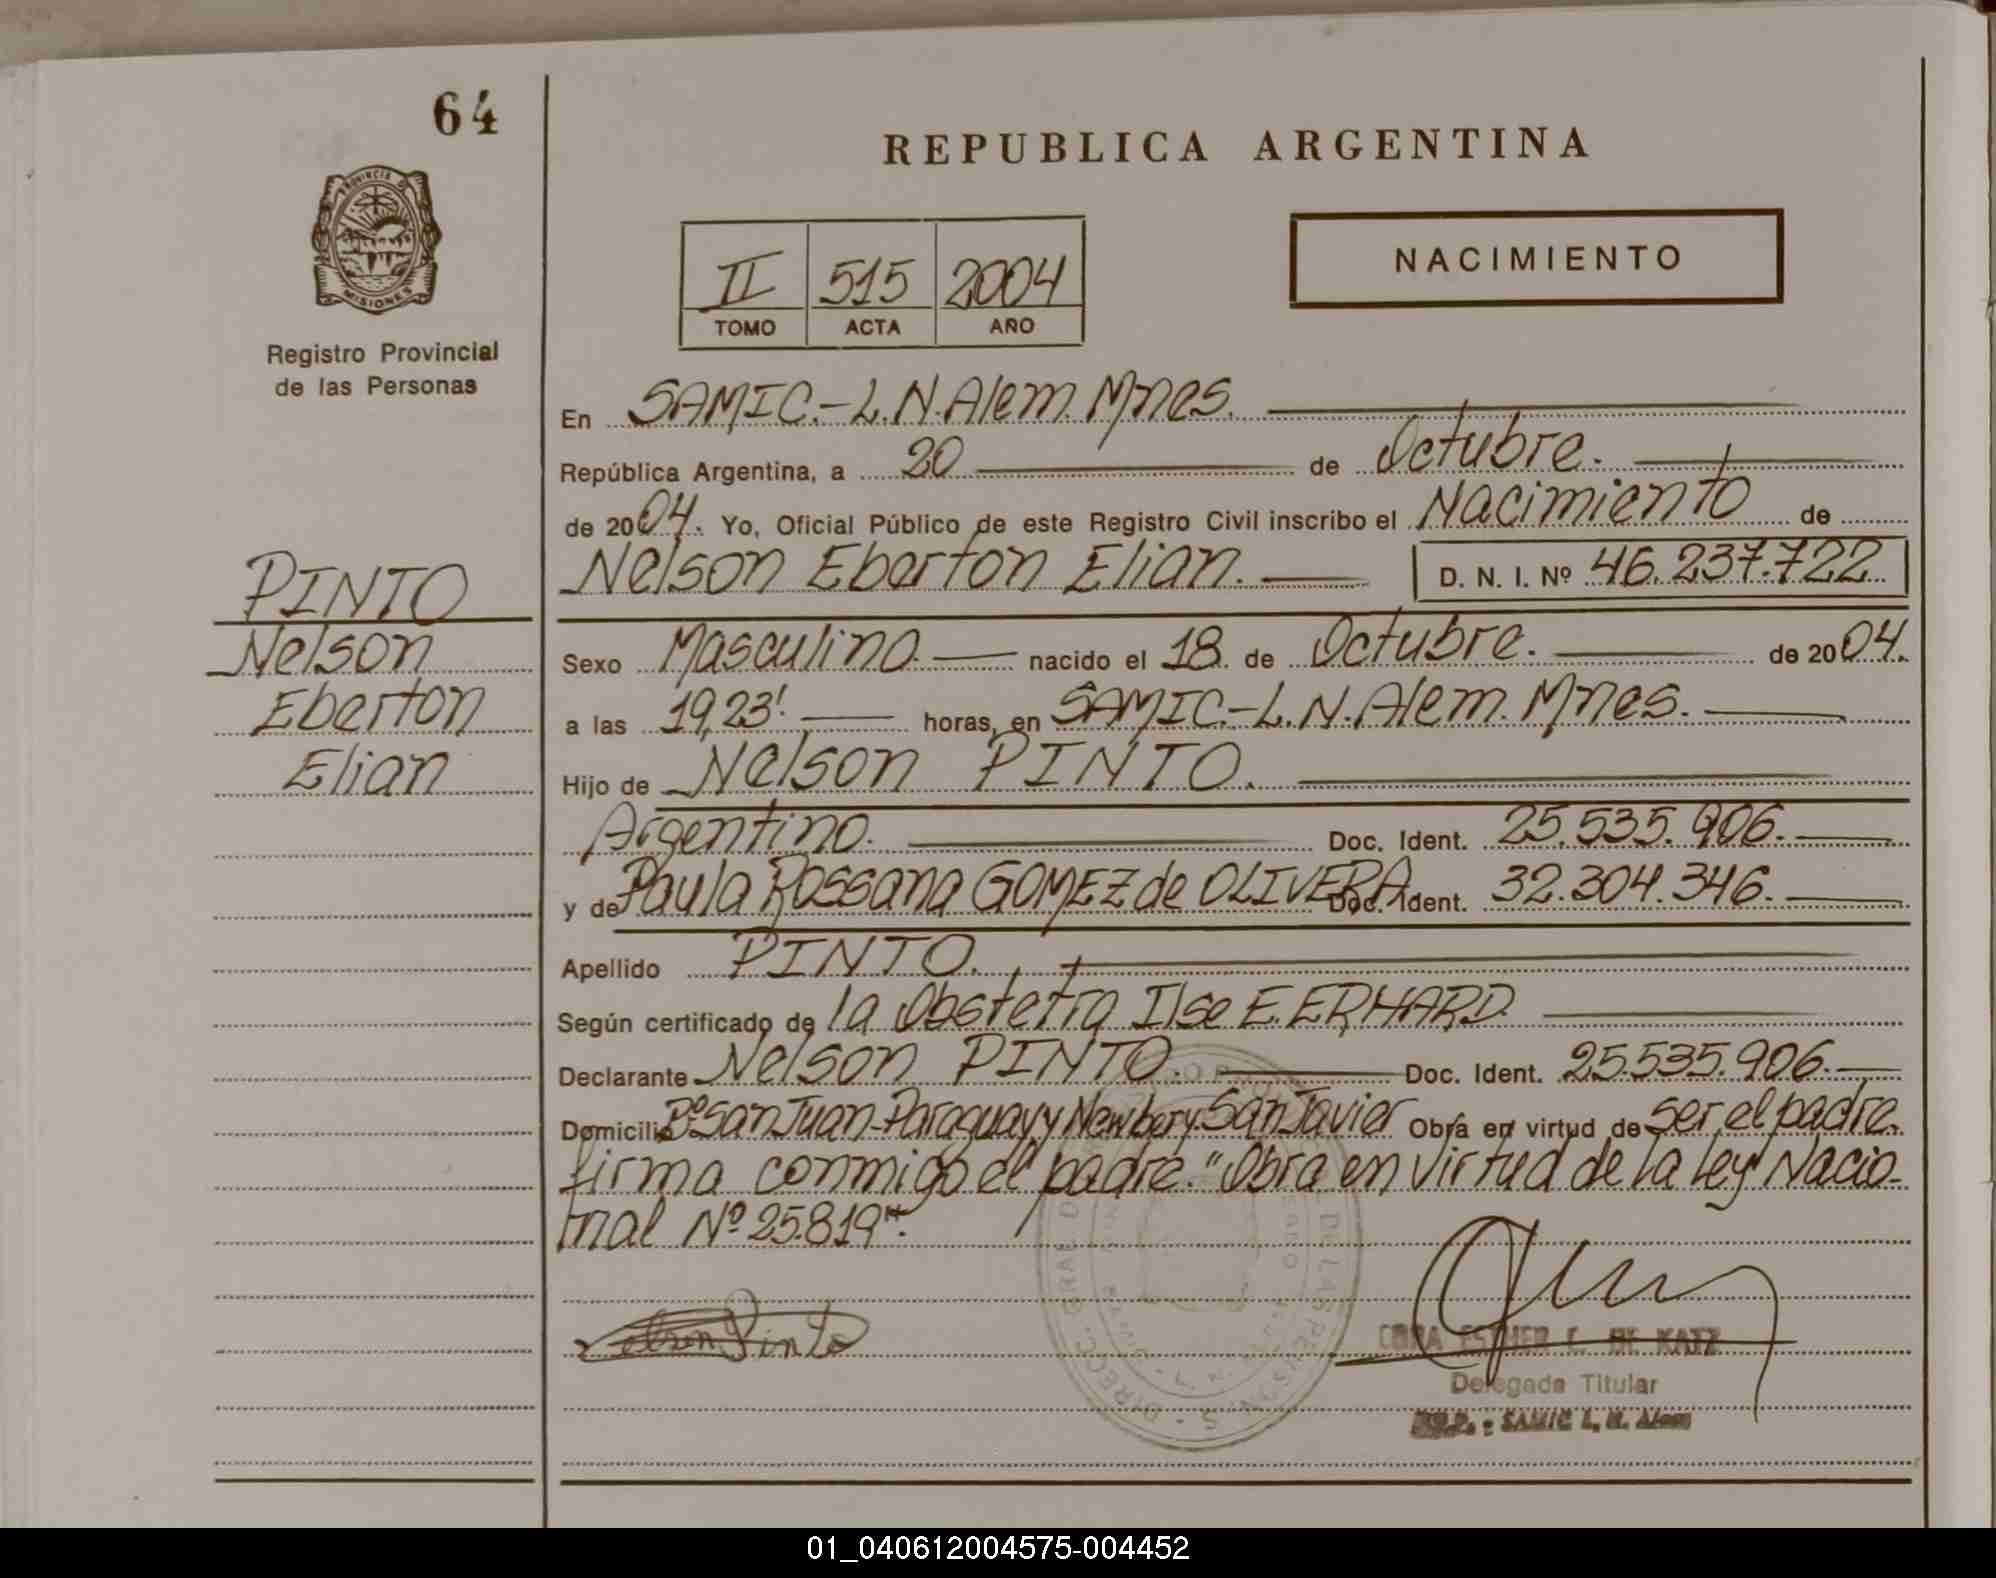 64
PROVINCIA DE
MISIONES
Registro Provincial
de las Personas
PINTO
Nelson
Eberton
Elian
REPUBLICA ARGENTINA
II 515 2004
TOMO ACTA AÑO
NACIMIENTO
En SAMIC.-L.N.Alem. Mnes.
República Argentina, a 20 de Octubre.
de 2004. Yo, Oficial Público de este Registro Civil inscribo el Nacimiento de
Nelson Eberton Elian. D. N. I. Nº 46.237.722
Sexo Masculino nacido el 18 de Octubre. de 2004.
a las 19,23' horas, en SAMIC.-L.N.Alem. Mnes.
Hijo de Nelson PINTO.
Argentino. Doc. Ident. 25.535.906.
y de Paula Rossana GOMEZ de OLIVERA Doc. Ident. 32.304.346.
Apellido PINTO.
Según certificado de la Obstetra Ilse E. ERHARD.
Declarante Nelson PINTO. Doc. Ident. 25.535.906.
Domicilio Bº San Juan-Paraguay y Newbery-San Javier Obra en virtud de ser el padre.
firma conmigo el padre. "Obra en virtud de la Ley Nacio-
nal Nº 25.819".
Nelson Pinto
ESTHER C. DE KATZ
Delegada Titular
SAMIC L. N. Alem
01_040612004575-004452